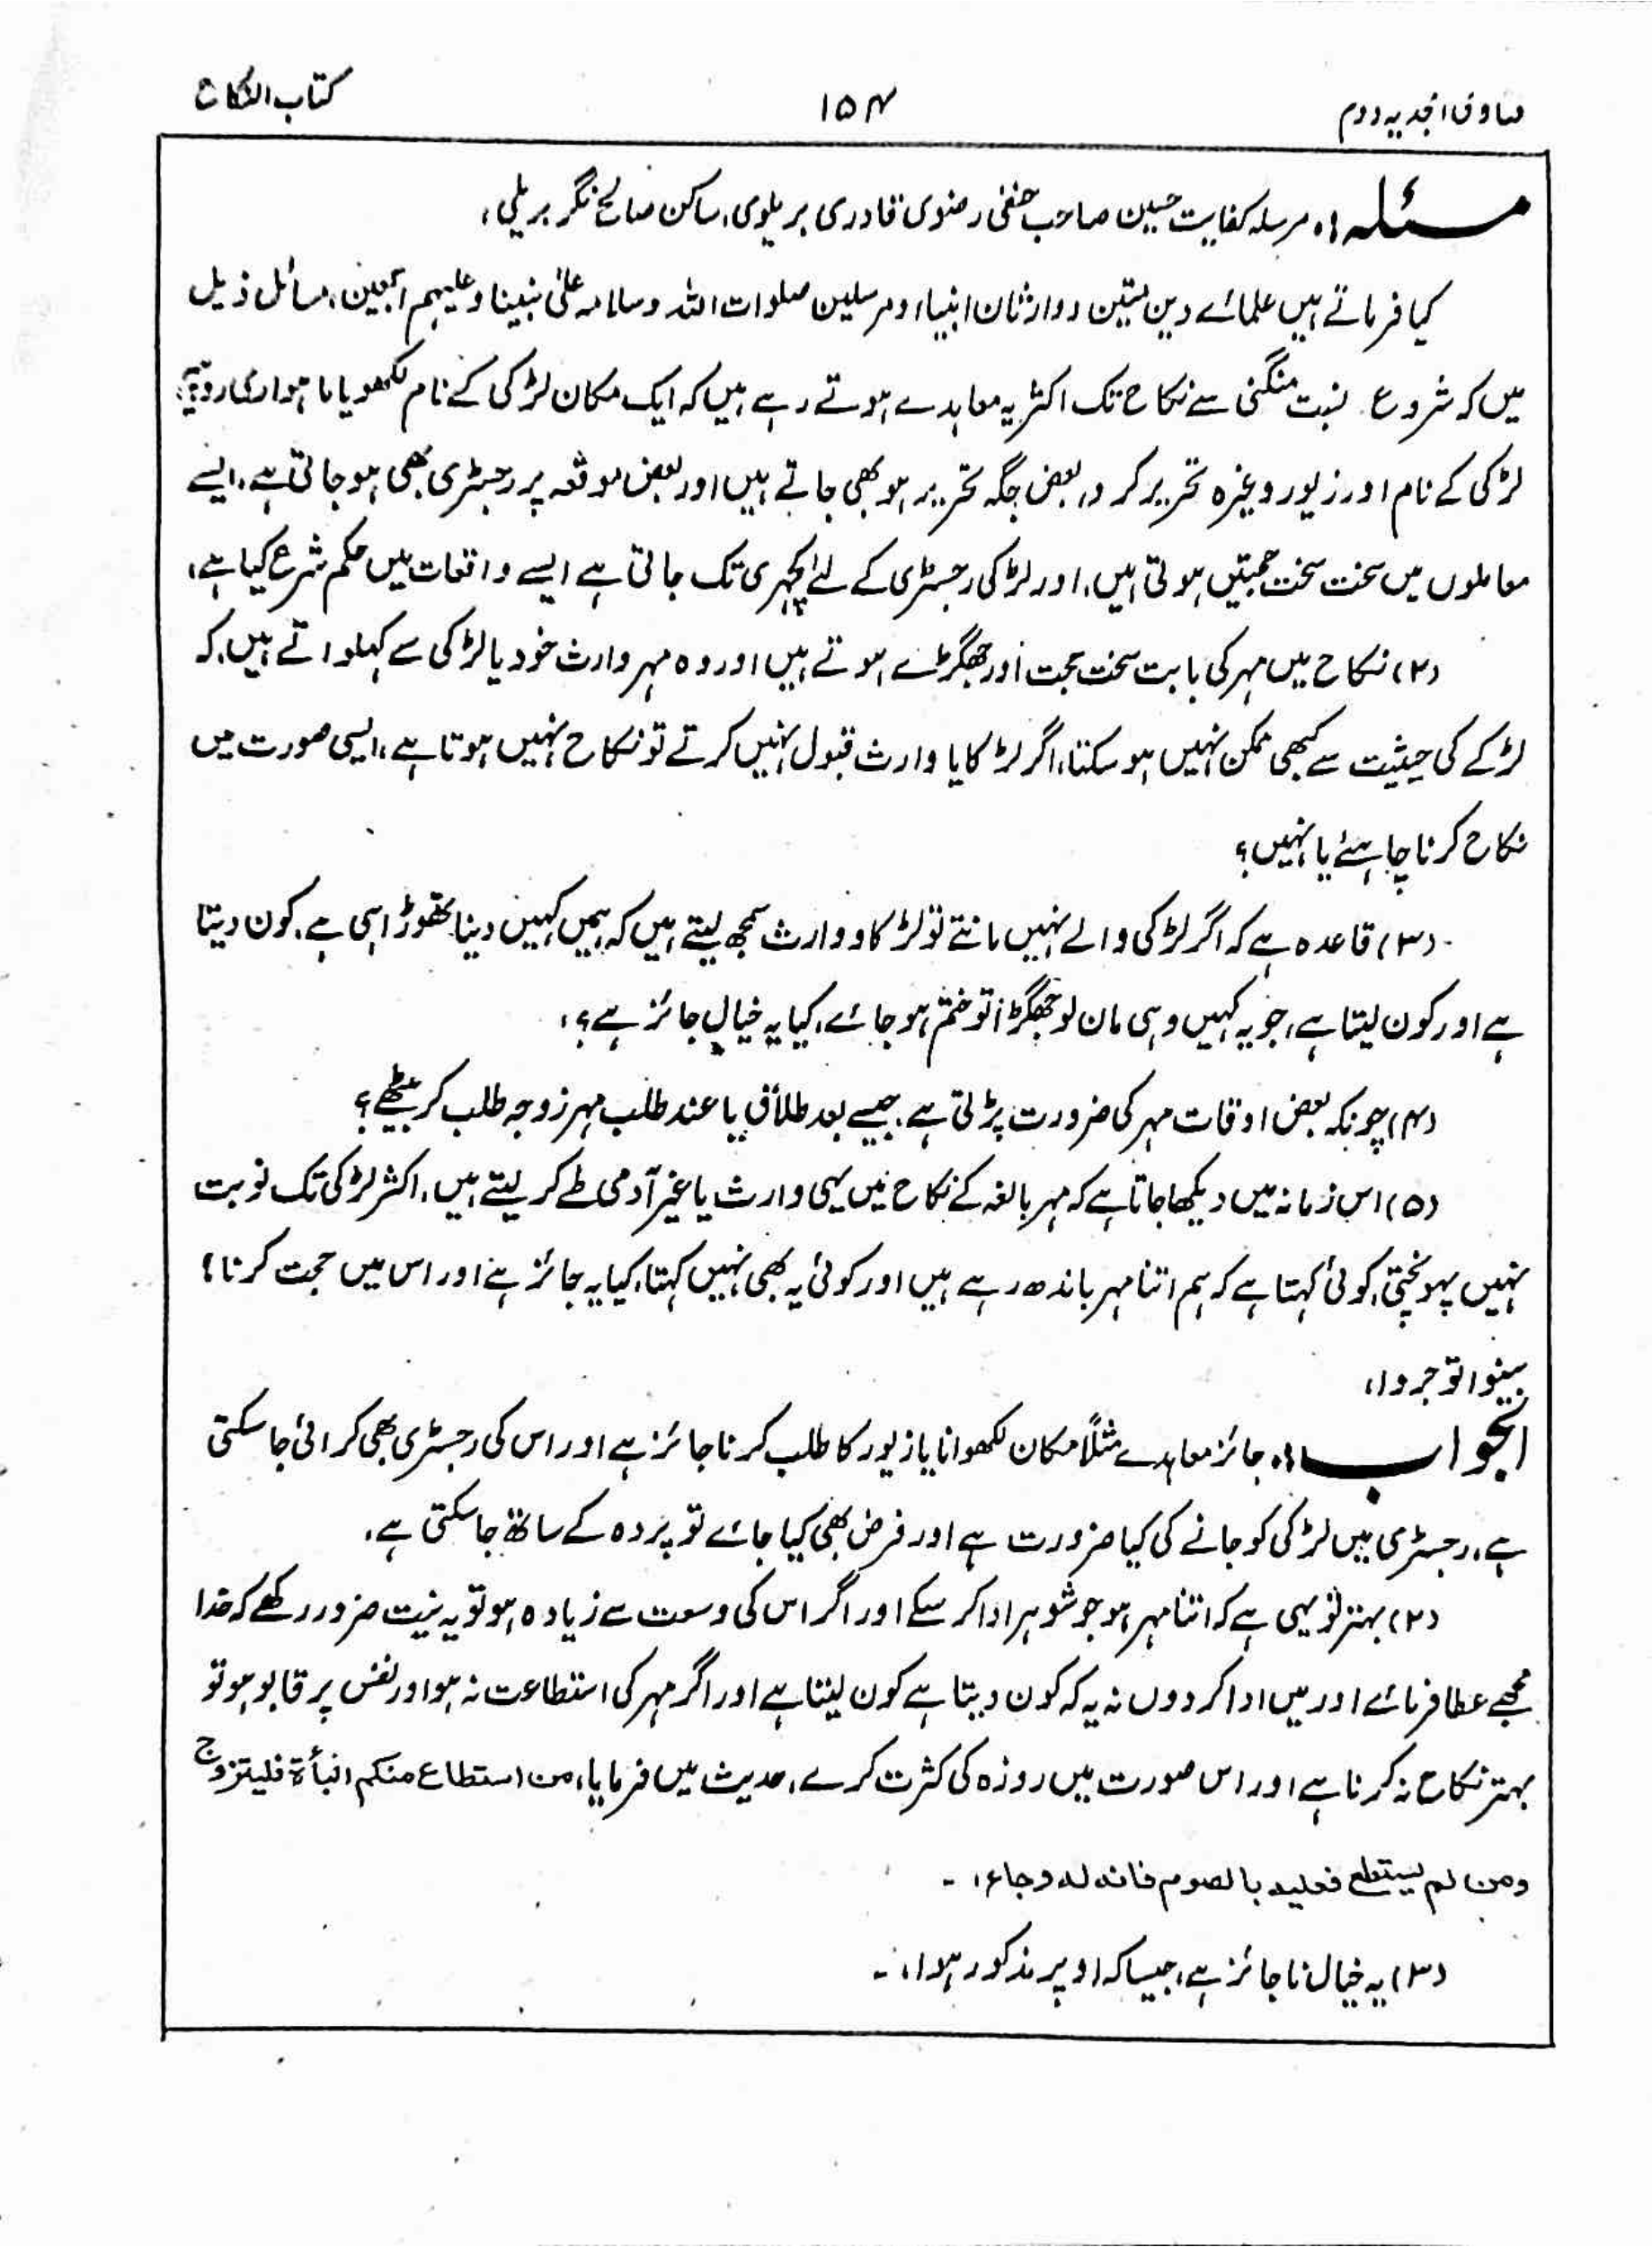 فتاوی امجدیہ دوم ۱۵۴ کتاب النکاح
مسئلہ :۔ مرسلہ کفایت حسین صاحب حنفی رضوی قادری بریلوی، ساکن صالح نگر بریلی،
کیا فرماتے ہیں علمائے دین متین و وارثان انبیاء و مرسلین صلوات اللہ وسلامہ علیٰ نبینا وعلیہم اجمعین، مسائل ذیل
میں کہ شروع نسبت منگنی سے نکاح تک اکثر یہ معاہدے ہوتے رہے ہیں کہ ایک مکان لڑکی کے نام لکھو یا ماہواری روپیہ
لڑکی کے نام اور زیور وغیرہ تحریر کر دو، بعض جگہ تحریر ہو بھی جاتے ہیں اور بعض موقعہ پر رجسٹری بھی ہو جاتی ہے، ایسے
معاملوں میں سخت سخت حجتیں ہوتی ہیں، اور لڑکی رجسٹری کے لئے کچہری تک جاتی ہے ایسے واقعات میں حکم شرع کیا ہے،
(۲) نکاح میں مہر کی بابت سخت حجت اور جھگڑے ہوتے ہیں اور وہ مہر وارث خود یا لڑکی سے کہلواتے ہیں، کہ
لڑکے کی حیثیت سے کبھی ممکن نہیں ہو سکتا، اگر لڑکا یا وارث قبول نہیں کرتے تو نکاح نہیں ہوتا ہے، ایسی صورت میں
نکاح کرنا چاہئے یا نہیں؟
(۳) قاعدہ ہے کہ اگر لڑکی والے نہیں مانتے تو لڑکا و وارث سمجھ لیتے ہیں کہ ہمیں کہیں دینا تھوڑا ہی ہے، کون دیتا
ہے اور کون لیتا ہے، جو یہ کہیں وہی مان لو جھگڑا تو ختم ہو جائے، کیا یہ خیال جائز ہے؟،
(۴) چونکہ بعض اوقات مہر کی ضرورت پڑتی ہے، جیسے بعد طلاق یا عند طلب مہر زوجہ طلب کر بیٹھے؟
(۵) اس زمانہ میں دیکھا جاتا ہے کہ مہر بالغہ کے نکاح میں یہی وارث یا غیر آدمی طے کر لیتے ہیں، اکثر لڑکی تک نوبت
نہیں پہونچتی، کوئی کہتا ہے کہ ہم اتنا مہر باندھ رہے ہیں اور کوئی یہ بھی نہیں کہتا، کیا یہ جائز ہے اور اس میں حجت کرنا؟
بینوا توجروا،
الجواب :۔ جائز معاہدے مثلاً مکان لکھوانا یا زیور کا طلب کرنا جائز ہے اور اس کی رجسٹری بھی کرائی جا سکتی
ہے، رجسٹری میں لڑکی کو جانے کی کیا ضرورت ہے اور فرض بھی کیا جائے تو پردہ کے ساتھ جا سکتی ہے،
(۲) بہتر تو یہی ہے کہ اتنا مہر ہو جو شوہر ادا کر سکے اور اگر اس کی وسعت سے زیادہ ہو تو یہ نیت ضرور رکھے کہ خدا
مجھے عطا فرمائے اور میں ادا کر دوں نہ یہ کہ کون دیتا ہے کون لیتا ہے اور اگر مہر کی استطاعت نہ ہو اور نفس پر قابو ہو تو
بہتر نکاح نہ کرنا ہے اور اس صورت میں روزہ کی کثرت کرے، حدیث میں فرمایا، من استطاع منکم البأۃ فلیتزوج
ومن لم یستطع فعلیہ بالصوم فانہ لہ وجاء، -
(۳) یہ خیال ناجائز ہے، جیسا کہ اوپر مذکور ہوا، -